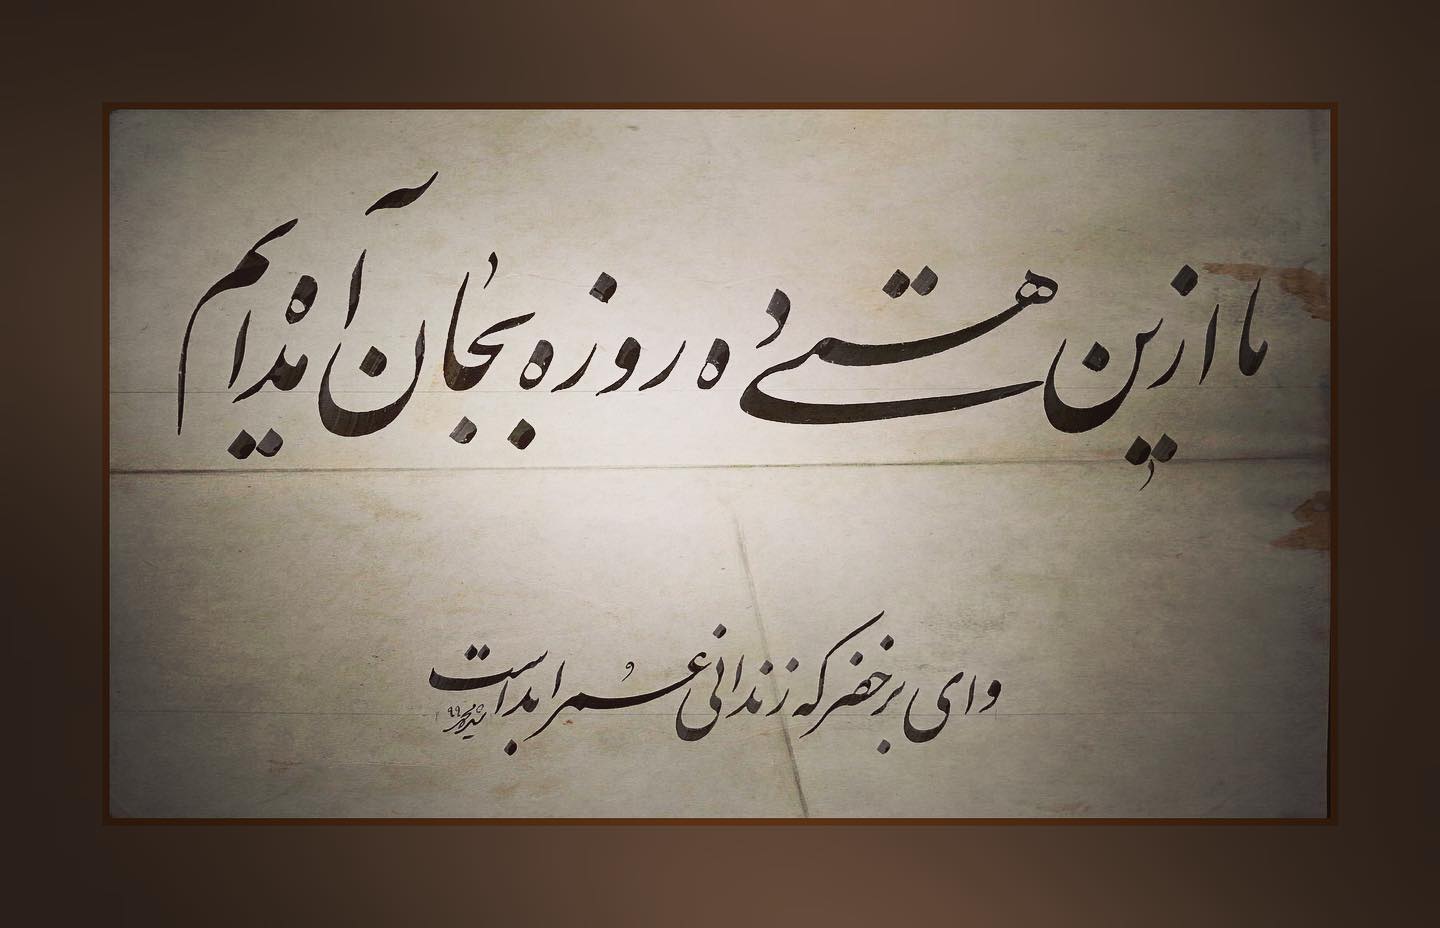 ما ازین هستی ده روزه بجان آمده‌ایم
وای بر خضر که زندانی عُمر ابد است
۹۹